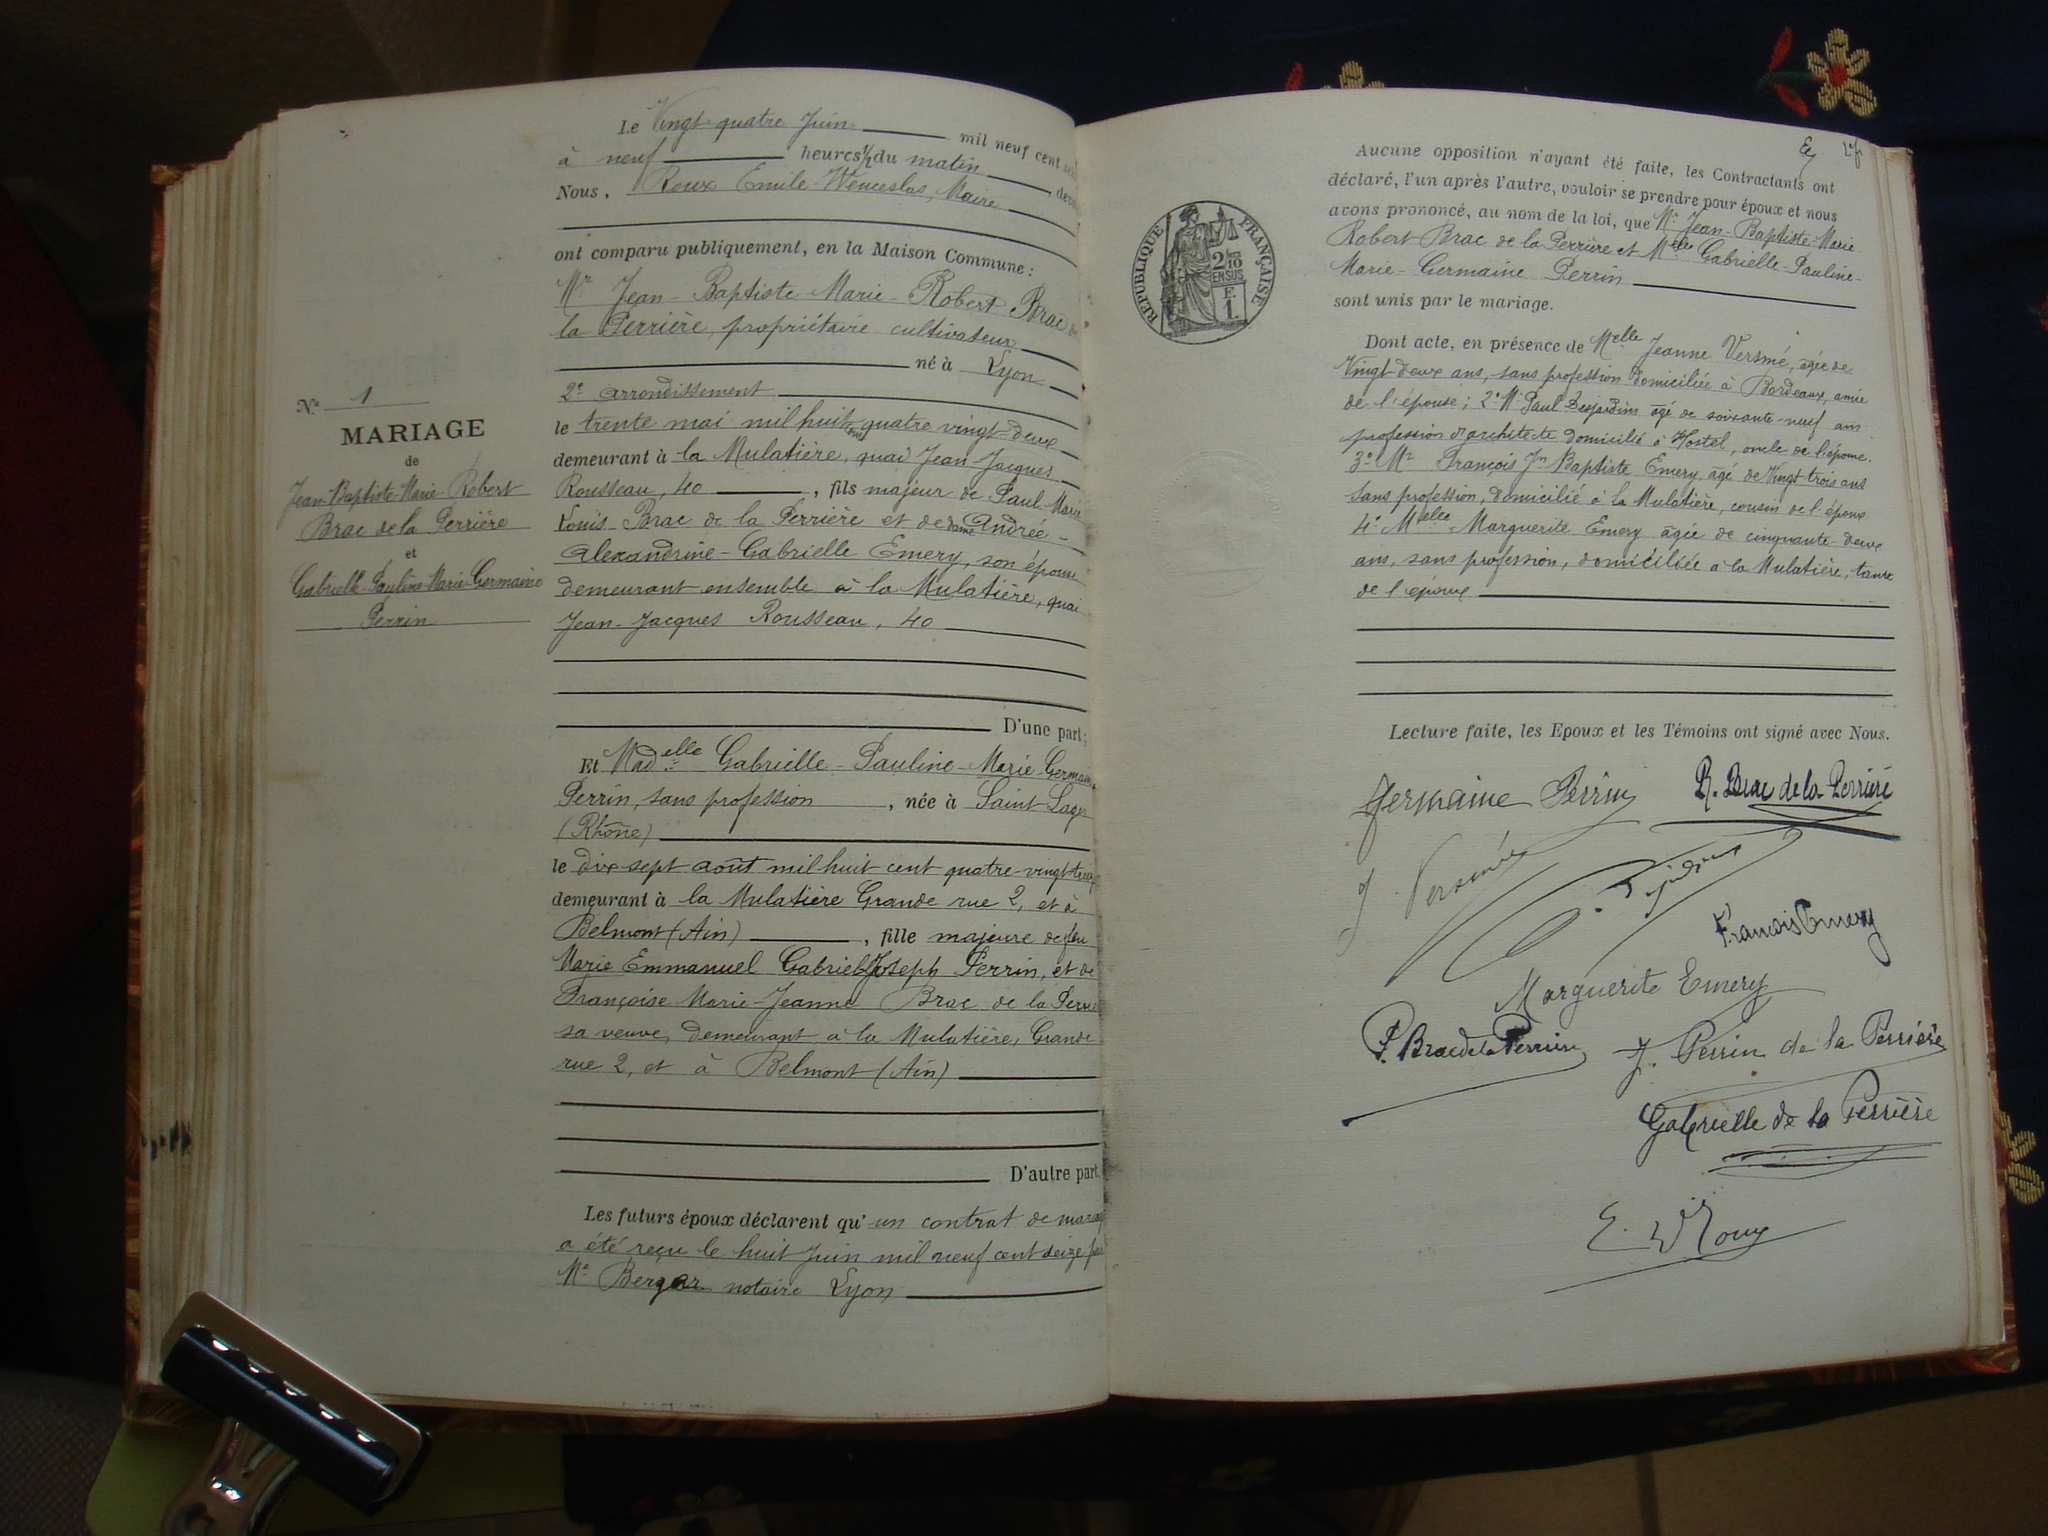 Le Vingt-quatre Juin mil neuf cent
à neuf heures 1/2 du matin, dev
Nous, Roux Emile-Wenceslas, Maire
ont comparu publiquement, en la Maison Commune :
Mr Jean-Baptiste-Marie-Robert Brac
la Perrière, propriétaire cultivateur
né à Lyon
2e arrondissement
le trente mai mil huit cent quatre vingt-deux
demeurant à la Mulatière, quai Jean-Jacques
Rousseau, 40, fils majeur de Paul-Marie
Louis Brac de la Perrière et de dame Andrée-
Alexandrine-Gabrielle Emery, son épouse
demeurant ensemble à la Mulatière, quai
Jean-Jacques Rousseau, 40
N° 1
MARIAGE
de
Jean-Baptiste-Marie-Robert
Brac de la Perrière
et
Gabrielle-Pauline-Marie-Germaine
Perrin
D'une part;
Et Madelle Gabrielle-Pauline-Marie-Germain
Perrin, sans profession, née à Saint-Lager
(Rhône)
le dix-sept août mil huit cent quatre-vingt
demeurant à la Mulatière Grande rue 2, et à
Belmont (Ain), fille majeure de feu
Marie Emmanuel Gabriel Joseph Perrin, et de
Françoise-Marie-Jeanne Brac de la Perri
sa veuve, demeurant à la Mulatière, Grande
rue 2, et à Belmont (Ain)
D'autre part.
Les futurs époux déclarent qu'un contrat de maria
a été reçu le huit Juin mil neuf cent seize par
Me Berger notaire Lyon
Aucune opposition n'ayant été faite, les Contractants ont
déclaré, l'un après l'autre, vouloir se prendre pour époux et nous
avons prononcé, au nom de la loi, que Mr Jean-Baptiste-Marie
Robert Brac de la Perrière et Melle Gabrielle-Pauline-
Marie-Germaine Perrin
sont unis par le mariage.
RÉPUBLIQUE FRANÇAISE
2/10
EN SUS
E.
1.
Dont acte, en présence de Melle Jeanne Versmé, âgée de
Vingt-deux ans, sans profession domiciliée à Bordeaux, amie
de l'épouse; 2° Mr Paul Desjardins âgé de soixante-neuf ans
profession d'architecte domicilié à Hostel, oncle de l'épouse.
3° Mr François Jn Baptiste Emery, âgé de Vingt-trois ans
sans profession, domicilié à la Mulatière, cousin de l'époux
4° Melle Marguerite Emery âgée de cinquante-deux
ans, sans profession, domiciliée à la Mulatière, tante
de l'époux
Lecture faite, les Epoux et les Témoins ont signé avec Nous.
Germaine Perrin R. Brac de la Perrière
J. Versmée
François Emery
Marguerite Emery
P. Brac de la Perrière J. Perrin de la Perrière
Gabrielle de la Perrière
E. W Roux